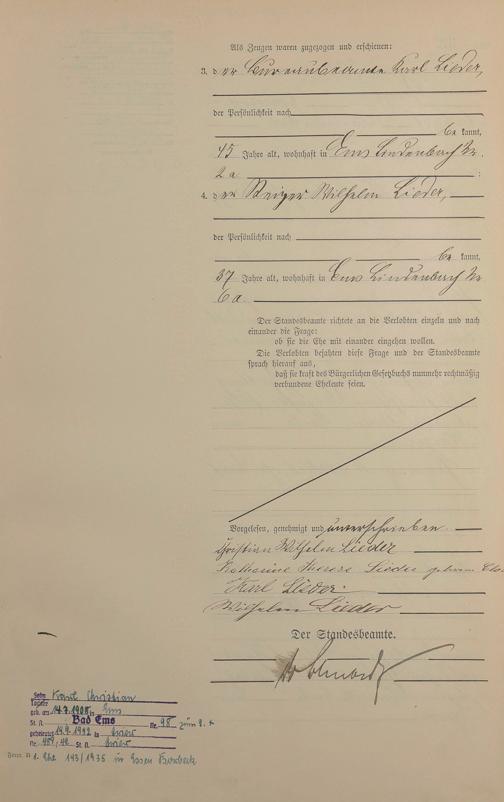 Als Zeugen waren zugezogen und erschienen:
3. der Bureaubeamte Karl Lieder,
der Persönlichkeit nach
be kannt,
45 Jahre alt, wohnhaft in Ems Lindenbach Nr.
2a ;
4. der Steiger Wilhelm Lieder,
der Persönlichkeit nach
be kannt,
37 Jahre alt, wohnhaft in Ems Lindenbach Nr
6a.
Der Standesbeamte richtete an die Verlobten einzeln und nach
einander die Frage:
ob sie die Ehe mit einander eingehen wollen.
Die Verlobten bejahten diese Frage und der Standesbeamte
sprach hierauf aus,
daß sie kraft des Bürgerlichen Gesetzbuchs nunmehr rechtmäßig
verbundene Eheleute seien.
Vorgelesen, genehmigt und unterschrieben
Christian Wilhelm Lieder
Katharine Lieder geborne
Karl Lieder.
Wilhelm Lieder
Der Standesbeamte.
Sohn Christian
Tochter
geb. am 14.7.1908 in Ems
St. A. Bad Ems Nr. 98
geheiratet in
Nr. St. A.
1. Ehe 143/1935 in Essen Borbeck